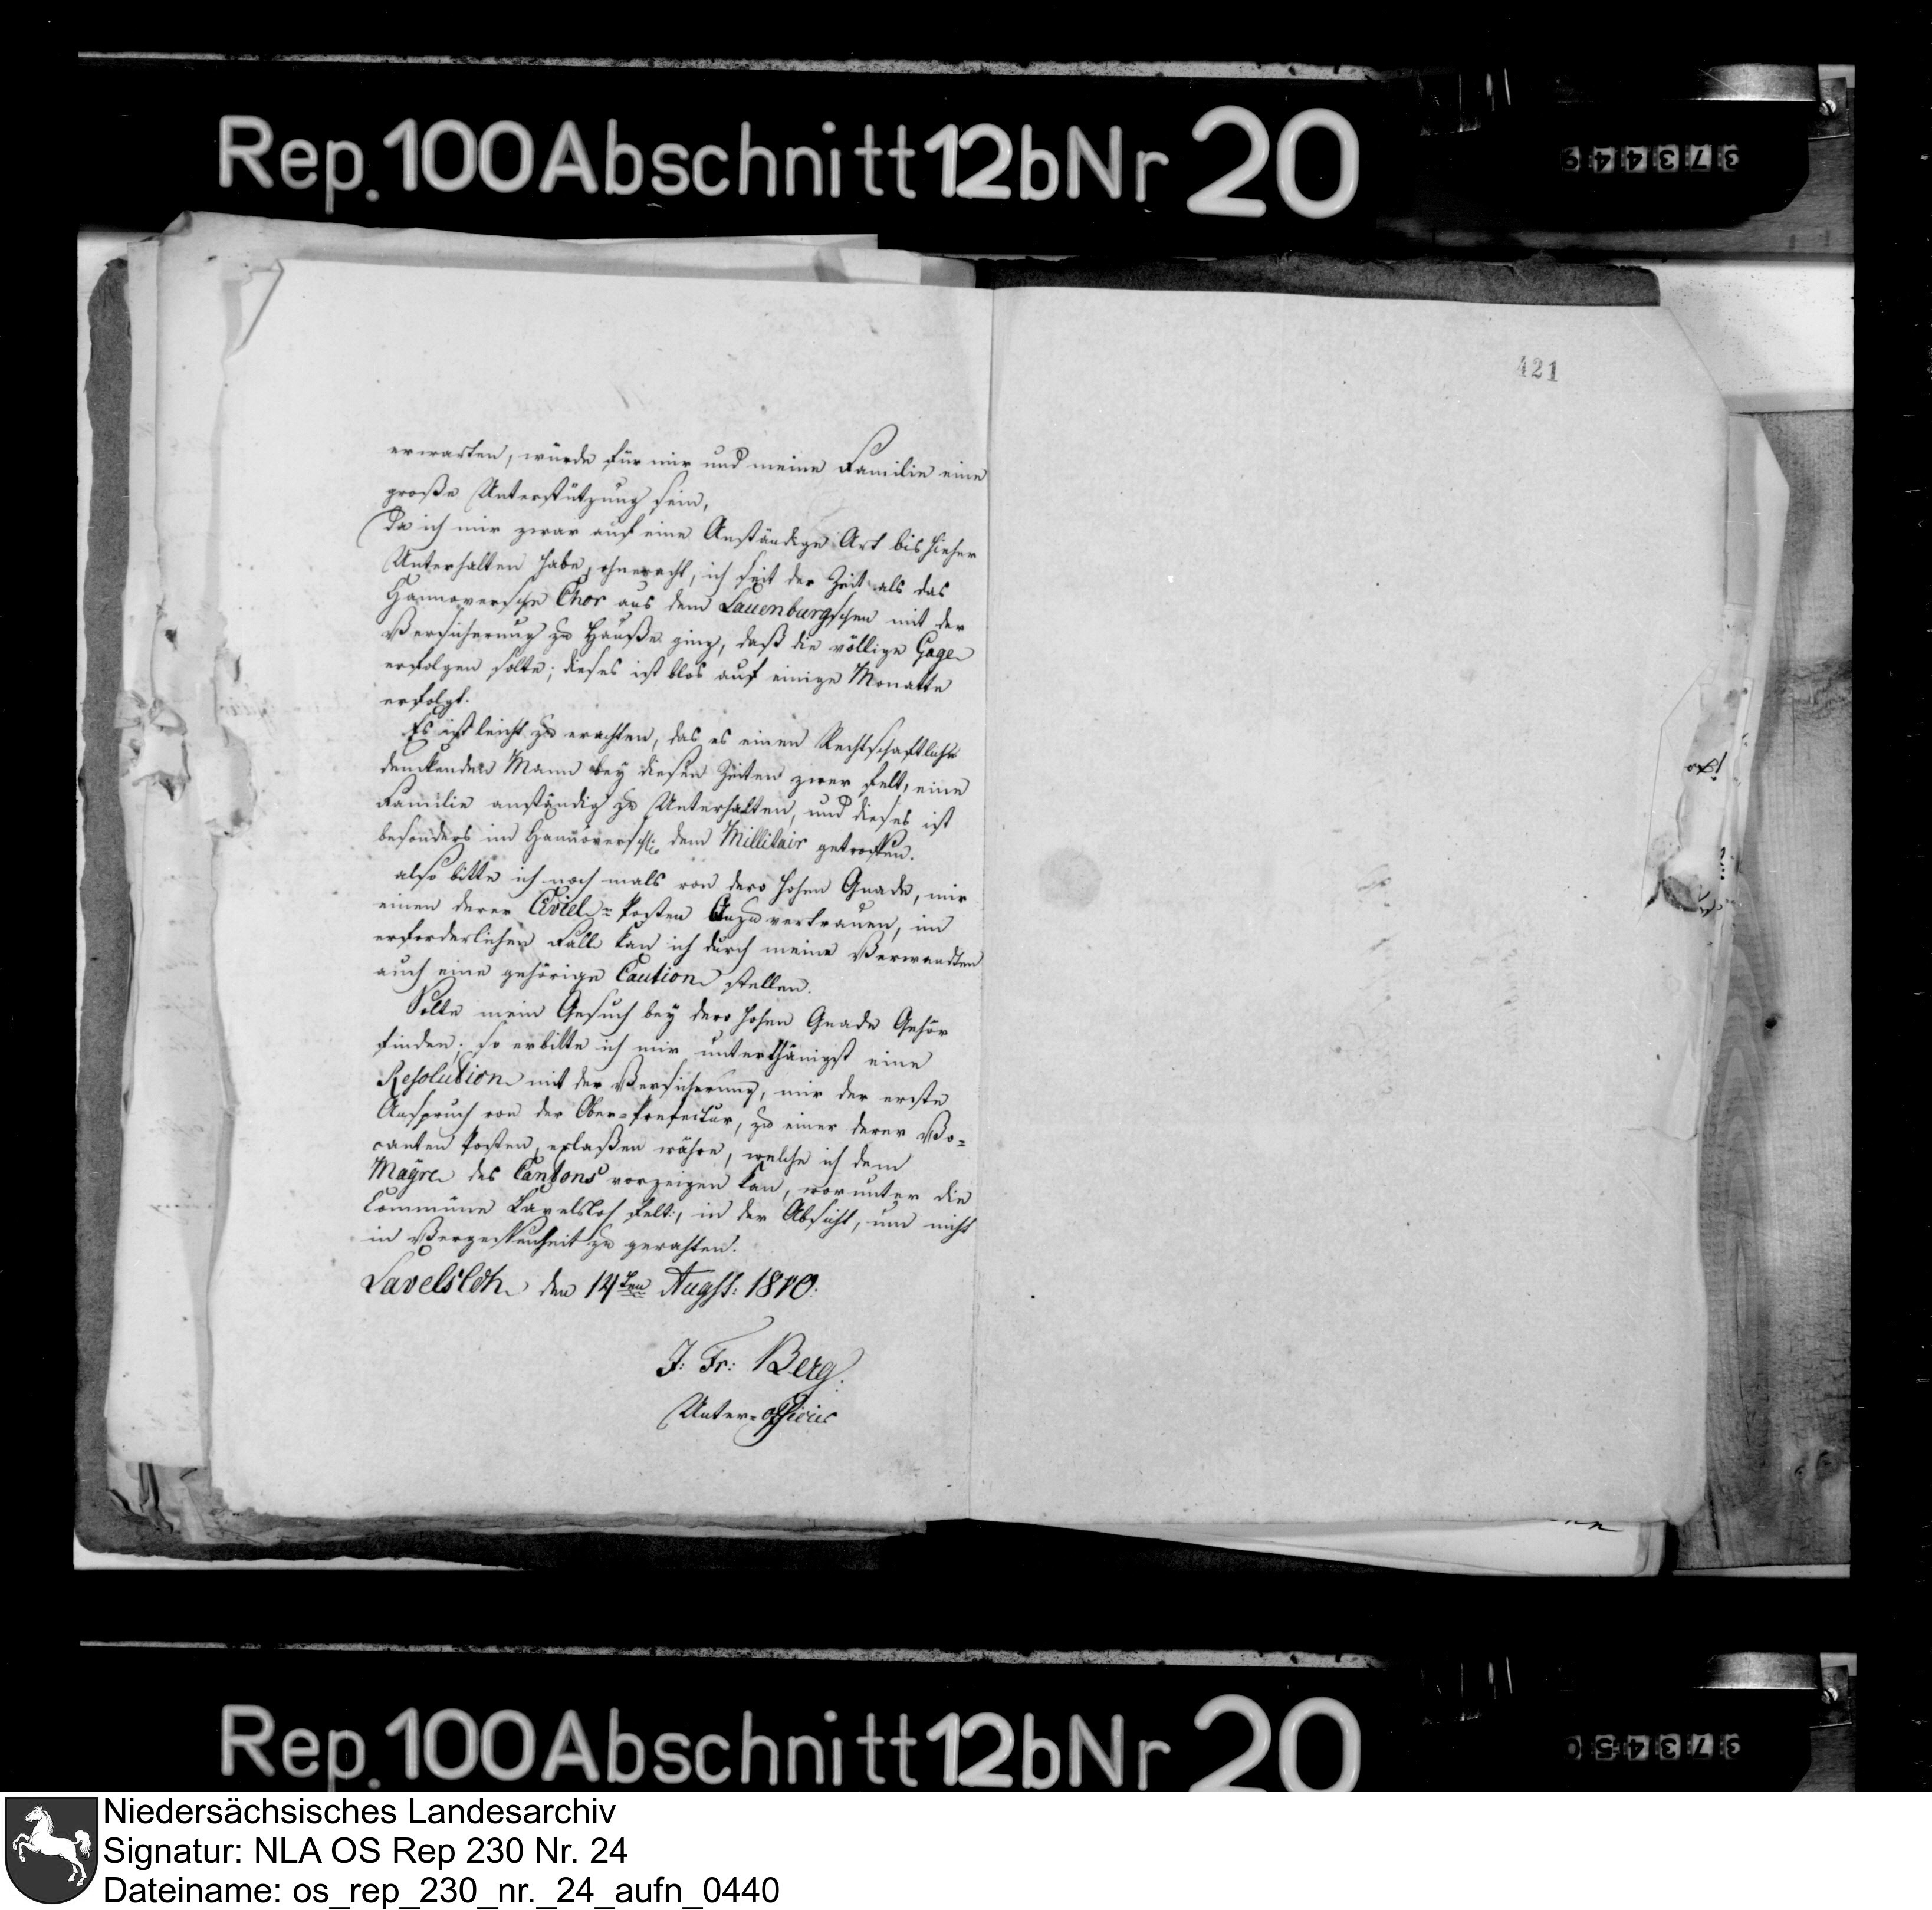 Rep. 100 Abschnitt 12b Nr 20
373449
421
erwarten, würde für mir und meine Familie eine
große Unterstützung sein,
Da ich mir zwar auf eine Anständige Art bis hieher
Unterhalten habe, ohneracht, ich seit der Zeit als das
Hannoversche Chor aus dem Lauenburgschen mit der
Versicherung zu Hauße ging, daß die völlige Gage
erfolgen solte; dieses ist blos auf einige Monatte
erfolgt.
Es ist leicht zu erachten, das es einen Rechtschaftlich
denckenden Mann bey diesen Zeiten zwer felt, eine
Familie anständig zu Unterhalten, und dieses ist
besonders im Hannöversch: dem Millitair getroffen.
also bitte ich noch mals von dero hohen Gnade, mir
einen derer Civiel-Posten Anzuvertrauen, im
erforderlichen Fall kan ich durch meine Verwandten
auch eine gehörige Caution stellen.
Solte mein Gesuch bey dero hohen Gnade Gehör
finden; so erbitte ich mir unterthänigst eine
Resolution mit der Versicherung, mir der erste
Anspruch von der Ober-Prefectur, zu einer derer Va-
canten Posten, erlaßen währe, welche ich dem
Mayre des Cantons vorzeigen kan, worunter die
Commüne Lavelsloh felt:, in der Absicht, um nicht
in Vergessenheit zu gerathen.
Lavelsloh den 14ten Augst: 1810.
J: Fr: Berg.
Unter-officier
Rep. 100 Abschnitt 12b Nr 20
373450
Niedersächsisches Landesarchiv
Signatur: NLA OS Rep 230 Nr. 24
Dateiname: os_rep_230_nr._24_aufn_0440